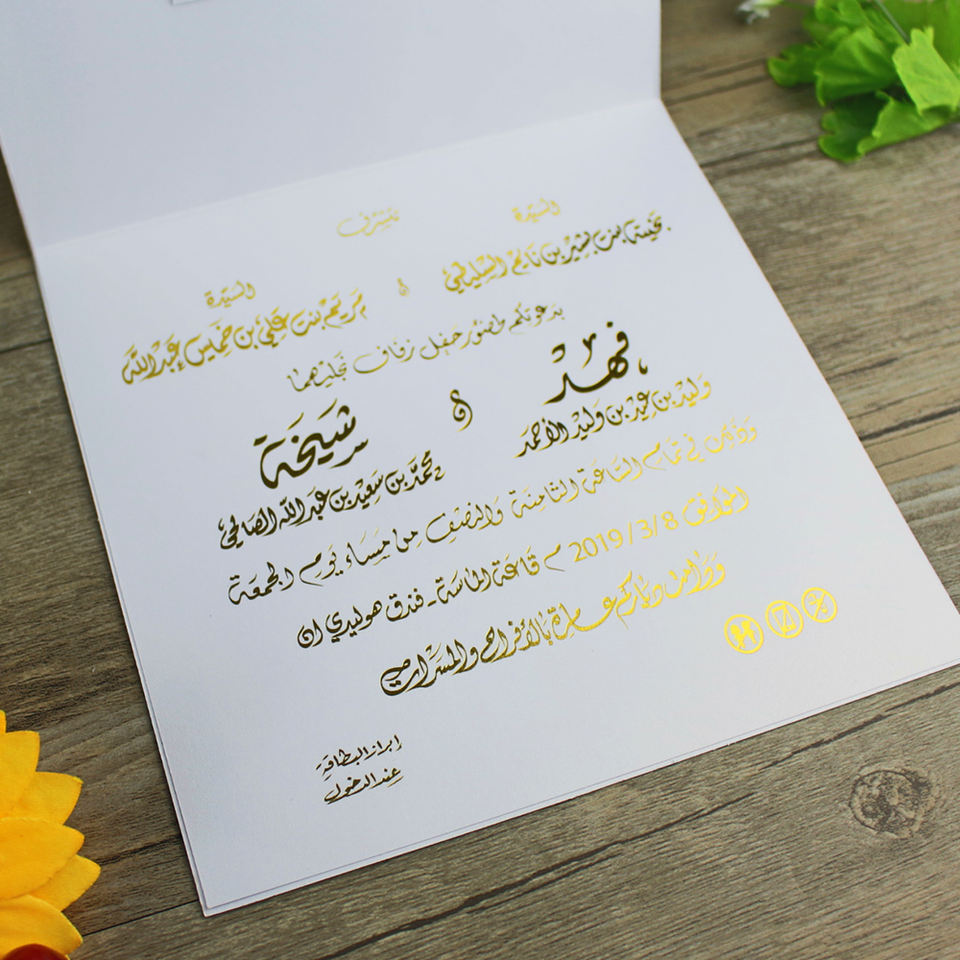 تتشرف
السيدة
نجيمة بنت بشير بن ناجم السليطي
&
السيدة
مريم بنت علي بن خميس عبدالله
بدعوتكم لحضور حفل زفاف نجليهما
فهد
وليد بن عيد بن وليد الأحمد
&
شيخة
محمد بن سعيد بن عبدالله الصالحي
وذلك في تمام الساعة الثامنة والنصف من مساء يوم الجمعة
الموافق 2019/3/8 م قاعة الماسة - فندق هوليدي ان
ودامت دياركم عامرة بالأفراح والمسرات
ابراز البطاقة
عند الدخول